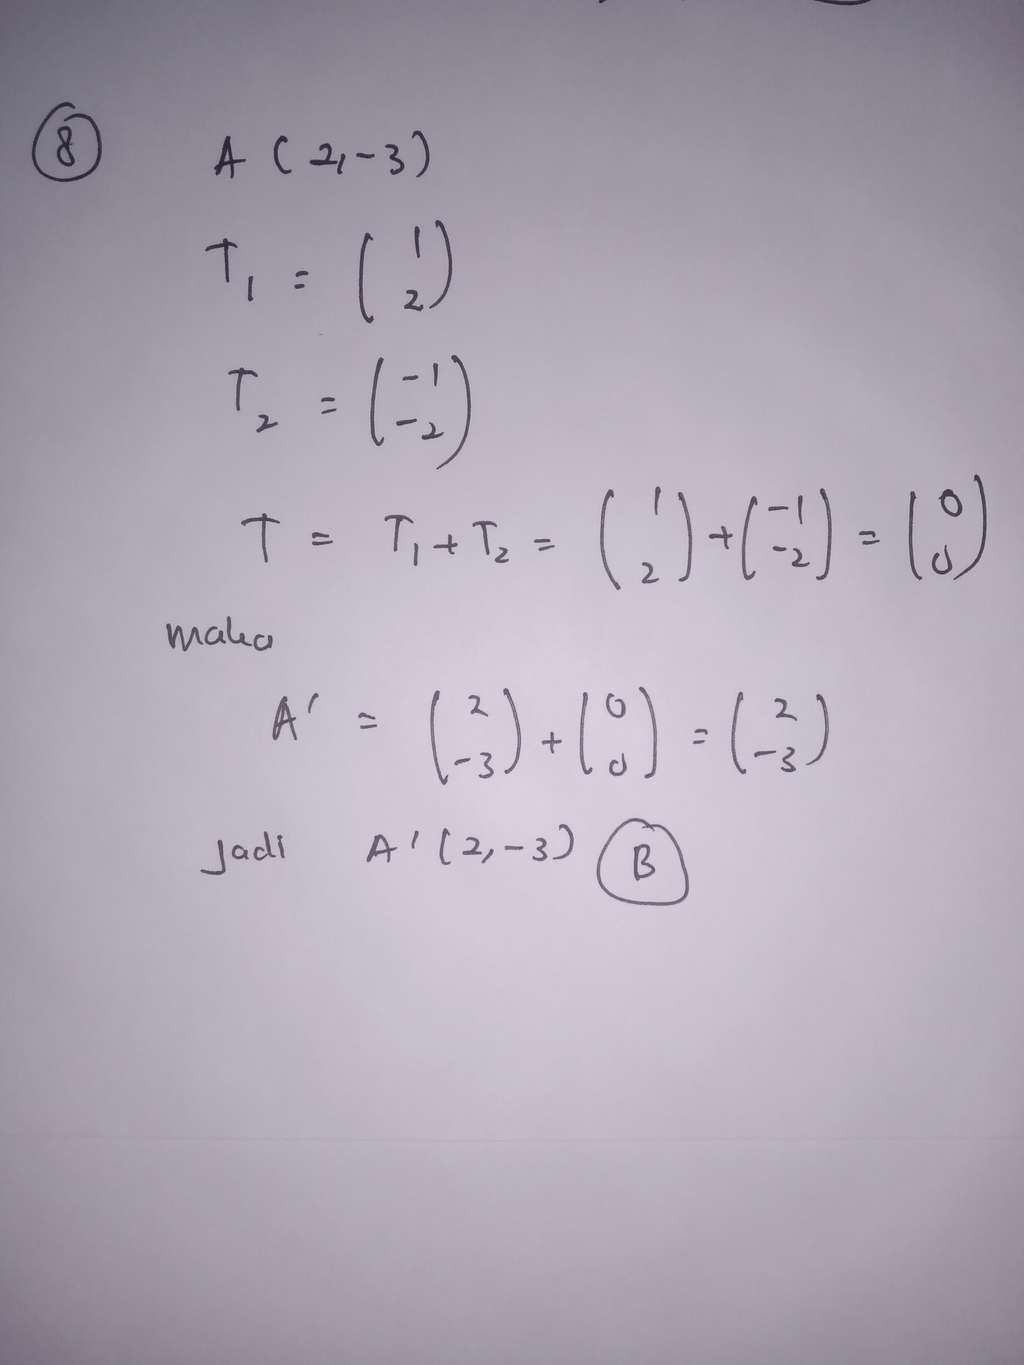 8 A (2,-3)
T₁ = (1 2)
T₂ = (-1 -2)
T = T₁ + T₂ = (1 2) + (-1 -2) = (0 0)
maka
A' = (2 -3) + (0 0) = (2 -3)
Jadi A' (2,-3) B